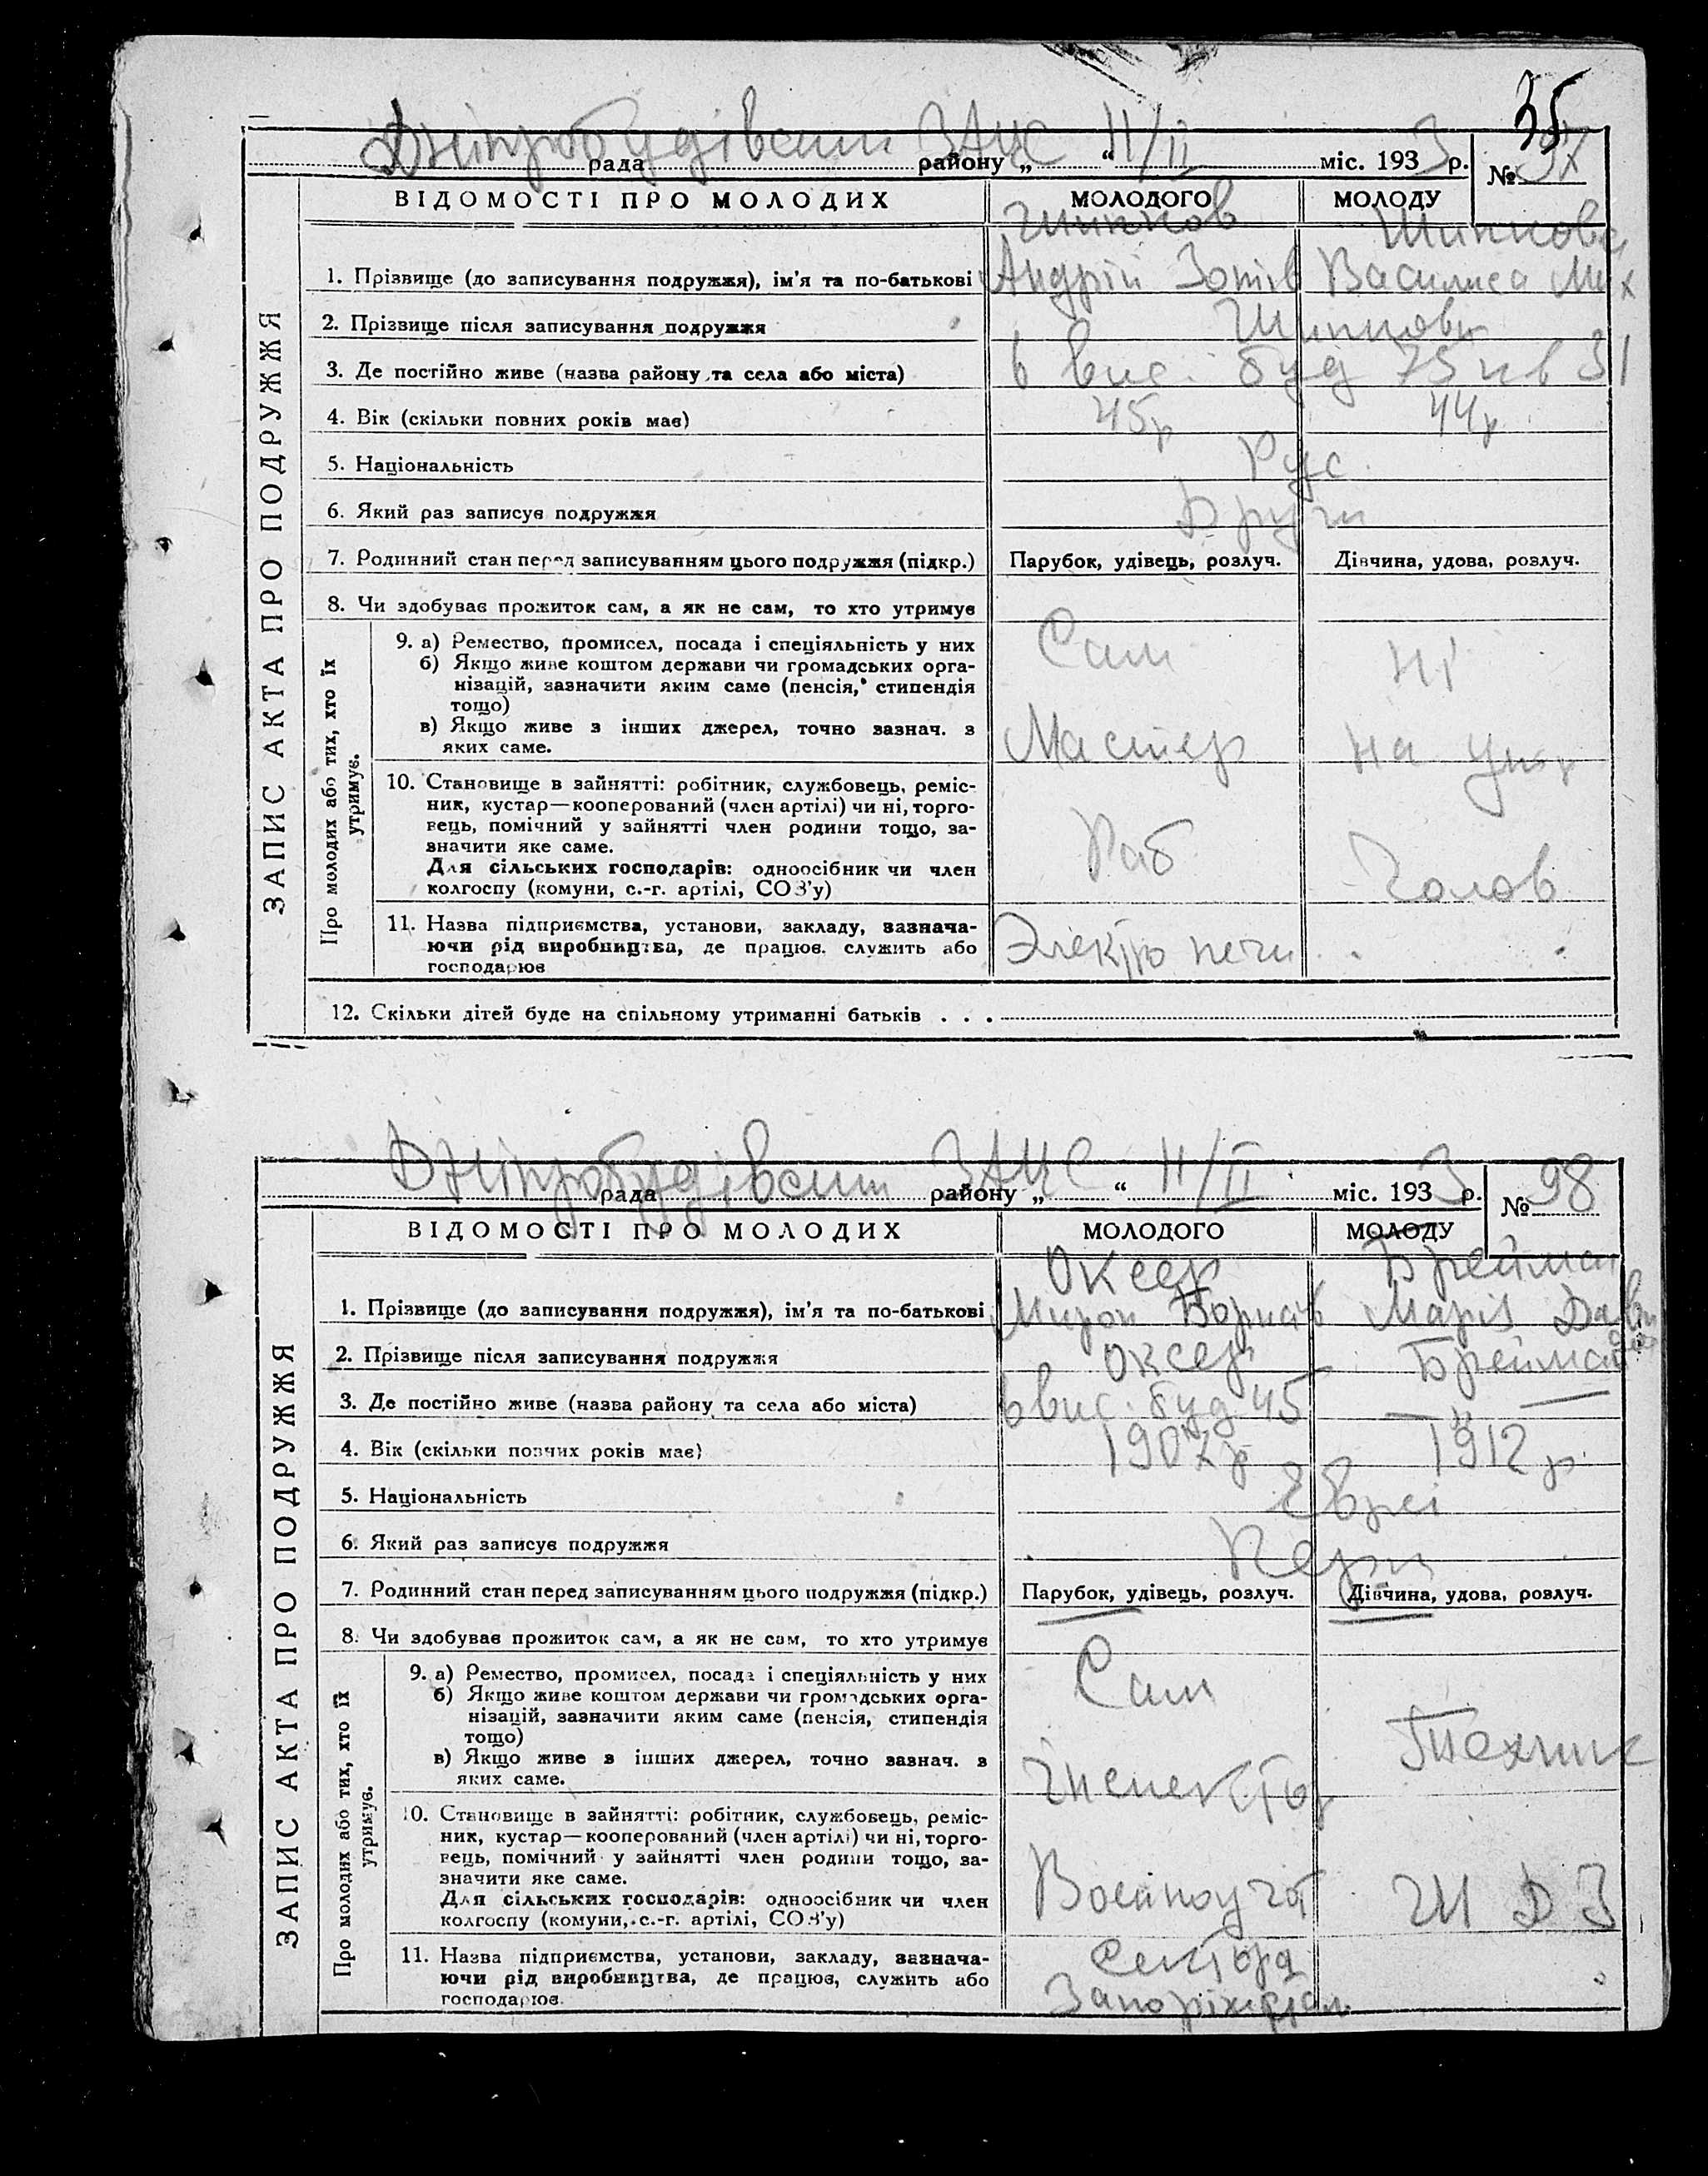 35
Дніпробудівськ ЗАЦС 11/II
рада району „ “ міс. 1933 р. № 97
ВІДОМОСТІ ПРО МОЛОДИХ МОЛОДОГО МОЛОДУ
ЗАПИС АКТА ПРО ПОДРУЖЖЯ
Шипков Шипкова
1. Прізвище (до записування подружжя), ім’я та по-батькові Андрій Зотів Василиса Мих
2. Прізвище після записування подружжя Шипкови
3. Де постійно живе (назва району та села або міста) 6 вис. буд 75 кв 31
4. Вік (скільки повних років має) 45р 44р
5. Національність Рус.
6. Який раз записує подружжя Други
7. Родинний стан перед записуванням цього подружжя (підкр.) Парубок, удівець, розлуч. Дівчина, удова, розлуч.
8. Чи здобуває прожиток сам, а як не сам, то хто утримує
Про молодих або тих, хто їх утримує.
9. а) Ремество, промисел, посада і спеціяльність у них Сам Ні
б) Якщо живе коштом держави чи громадських орга-
нізацій, зазначити яким саме (пенсія, стипендія
тощо)
в) Якщо живе з інших джерел, точно зазнач. з Мастер на утр
яких саме.
10. Становище в зайнятті: робітник, службовець, реміс-
ник, кустар—кооперований (член артілі) чи ні, торго-
вець, помічний у зайнятті член родини тощо, за-
значити яке саме. Раб Голов
Для сільських господарів: одноосібник чи член
колгоспу (комуни, с.-г. артілі, СОЗ’у)
11. Назва підприємства, установи, закладу, зазнача-
ючи рід виробництва, де працює, служить або Электро печи
господарює
12. Скільки дітей буде на спільному утриманні батьків . . .
Дніпробудівськ ЗАЦС 11/II
рада району „ “ міс. 1933 р. № 98
ВІДОМОСТІ ПРО МОЛОДИХ МОЛОДОГО МОЛОДУ
ЗАПИС АКТА ПРО ПОДРУЖЖЯ
Оксер Брейман
1. Прізвище (до записування подружжя), ім’я та по-батькові Мирон Борисів Марія Дави
2. Прізвище після записування подружжя Оксер Брейман
3. Де постійно живе (назва району та села або міста) 6 вис. буд 45 — " —
4. Вік (скільки повних років має) 1907 р 1912 р
5. Національність Євреі
6. Який раз записує подружжя Перш
7. Родинний стан перед записуванням цього подружжя (підкр.) Парубок, удівець, розлуч. Дівчина, удова, розлуч.
8. Чи здобуває прожиток сам, а як не сам, то хто утримує
Про молодих або тих, хто їх утримує.
9. а) Ремество, промисел, посада і спеціяльність у них Сам
б) Якщо живе коштом держави чи громадських орга-
нізацій, зазначити яким саме (пенсія, стипендія
тощо) Технік
в) Якщо живе з інших джерел, точно зазнач. з
яких саме. Інспектор
10. Становище в зайнятті: робітник, службовець, реміс-
ник, кустар—кооперований (член артілі) чи ні, торго-
вець, помічний у зайнятті член родини тощо, за-
значити яке саме.
Для сільських господарів: одноосібник чи член
колгоспу (комуни, с.-г. артілі, СОЗ’у)
11. Назва підприємства, установи, закладу, зазнача- Сектора
ючи рід виробництва, де працює, служить або
господарює Запоріжсталь